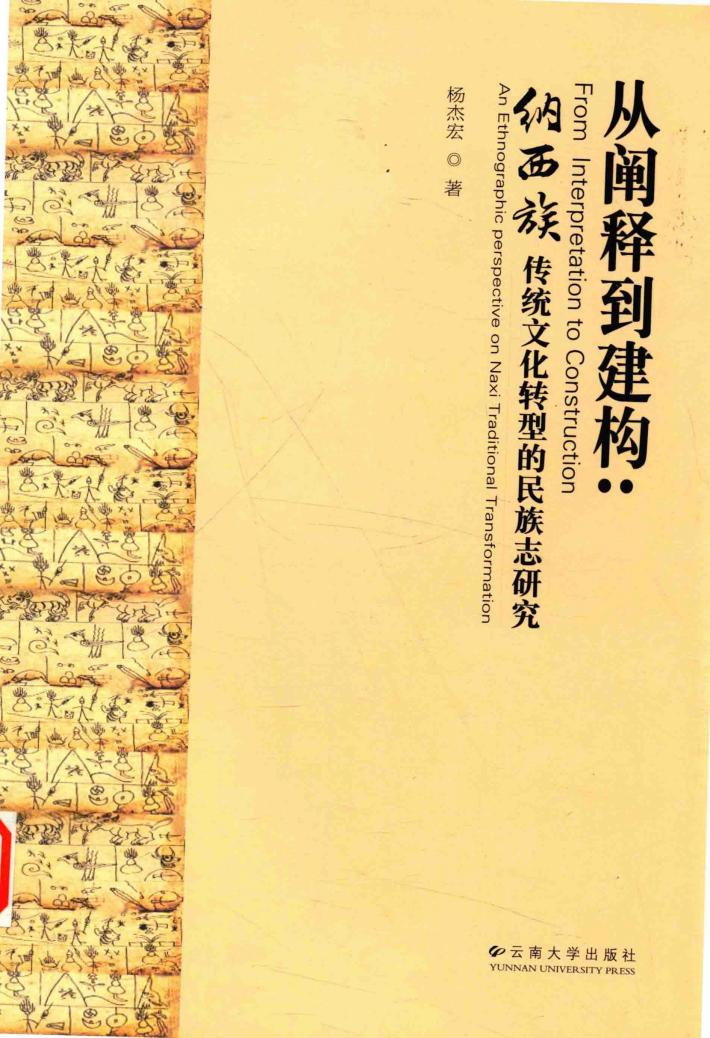 从阐释到建构：
From Interpretation to Construction
纳西族传统文化转型的民族志研究
An Ethnographic perspective on Naxi Traditional Transformation
杨杰宏 ◎ 著
云南大学出版社
YUNNAN UNIVERSITY PRESS